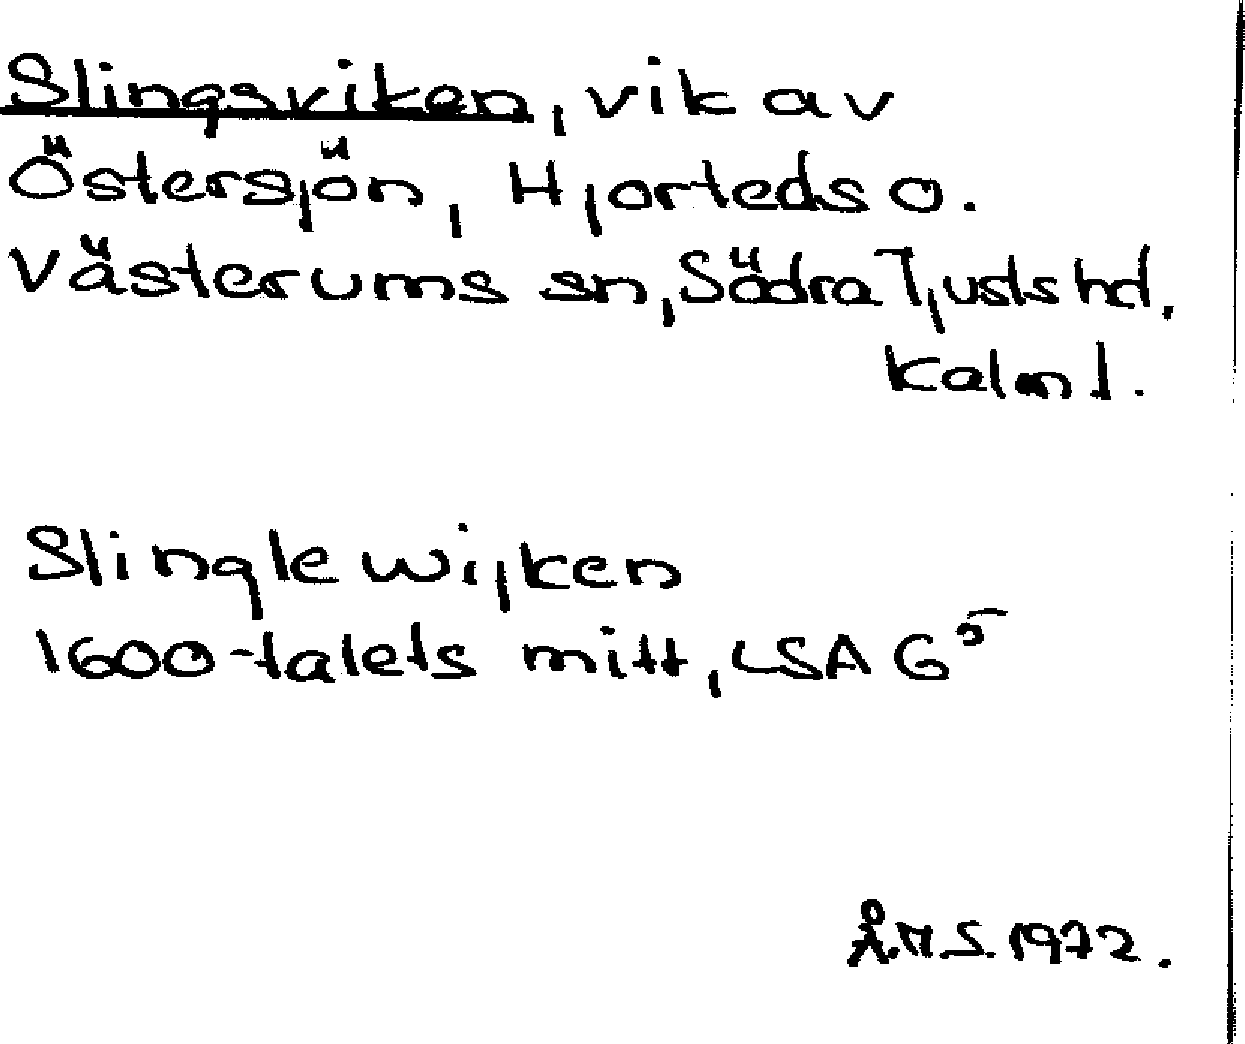 Slingsviken, vik av
Östersjön, Hjorteds o.
Västerums sn, Södra Tjusts hd.
Kalm l.
Slinglewijken
1600-talets mitt, LSA G5
Å.M.S. 1972.